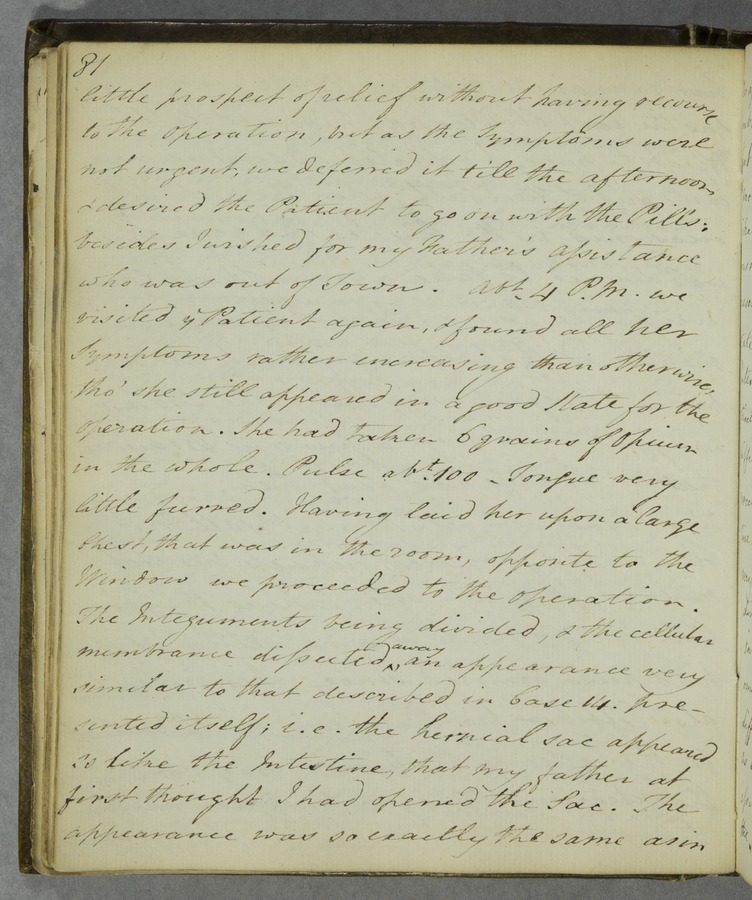 81
little prospect of relief without having recourse
to the operation, but as the Symptoms were
not urgent, we deferred it till the afternoon,
& desired the Patient to go on with the Pills;
besides I wished for my Father's assistance
who was out of Town. abt. 4 P.M. we
visited ye Patient again, & found all her
Symptoms rather increasing than otherwise,
tho' she still appeared in a good State for the
operation. She had taken 6 grains of Opium
in the whole. Pulse abt. 100 - Tongue very
little furred. Having laid her upon a large
Chest, that was in the room, opposite to the
Window we proceeded to the operation.
The Integuments being divided, & the cellular
away
membrane dissected ^ an appearance very
similar to that described in Case 14. pre-
sented itself; i.e. the hernial sac appeared
so like the Intestine, that my father at
first thought I had opened the Sac. The
appearance was so exactly the same as in